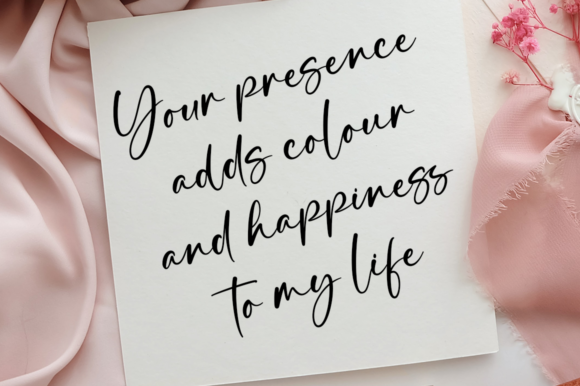 Your presence
adds colour
and happiness
to my life